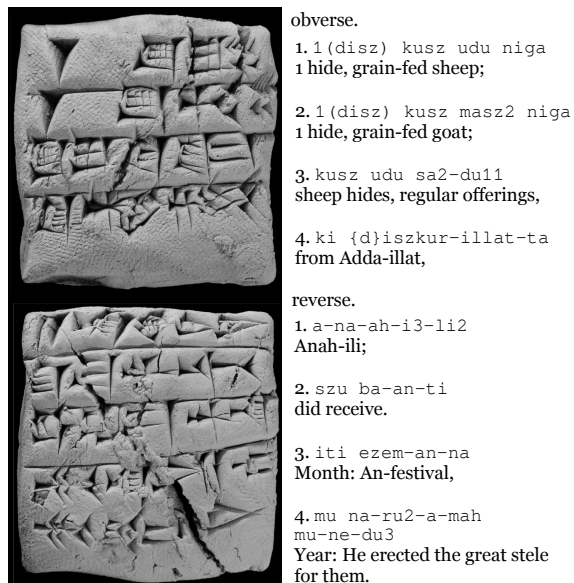 obverse.
1. 1(disz) kusz udu niga
1 hide, grain-fed sheep;
2. 1(disz) kusz masz2 niga
1 hide, grain-fed goat;
3. kusz udu sa2-du11
sheep hides, regular offerings,
4. ki {d}iszkur-illat-ta
from Adda-illat,
reverse.
1. a-na-ah-i3-li2
Anah-ili;
2. szu ba-an-ti
did receive.
3. iti ezem-an-na
Month: An-festival,
4. mu na-ru2-a-mah
mu-ne-du3
Year: He erected the great stele
for them.